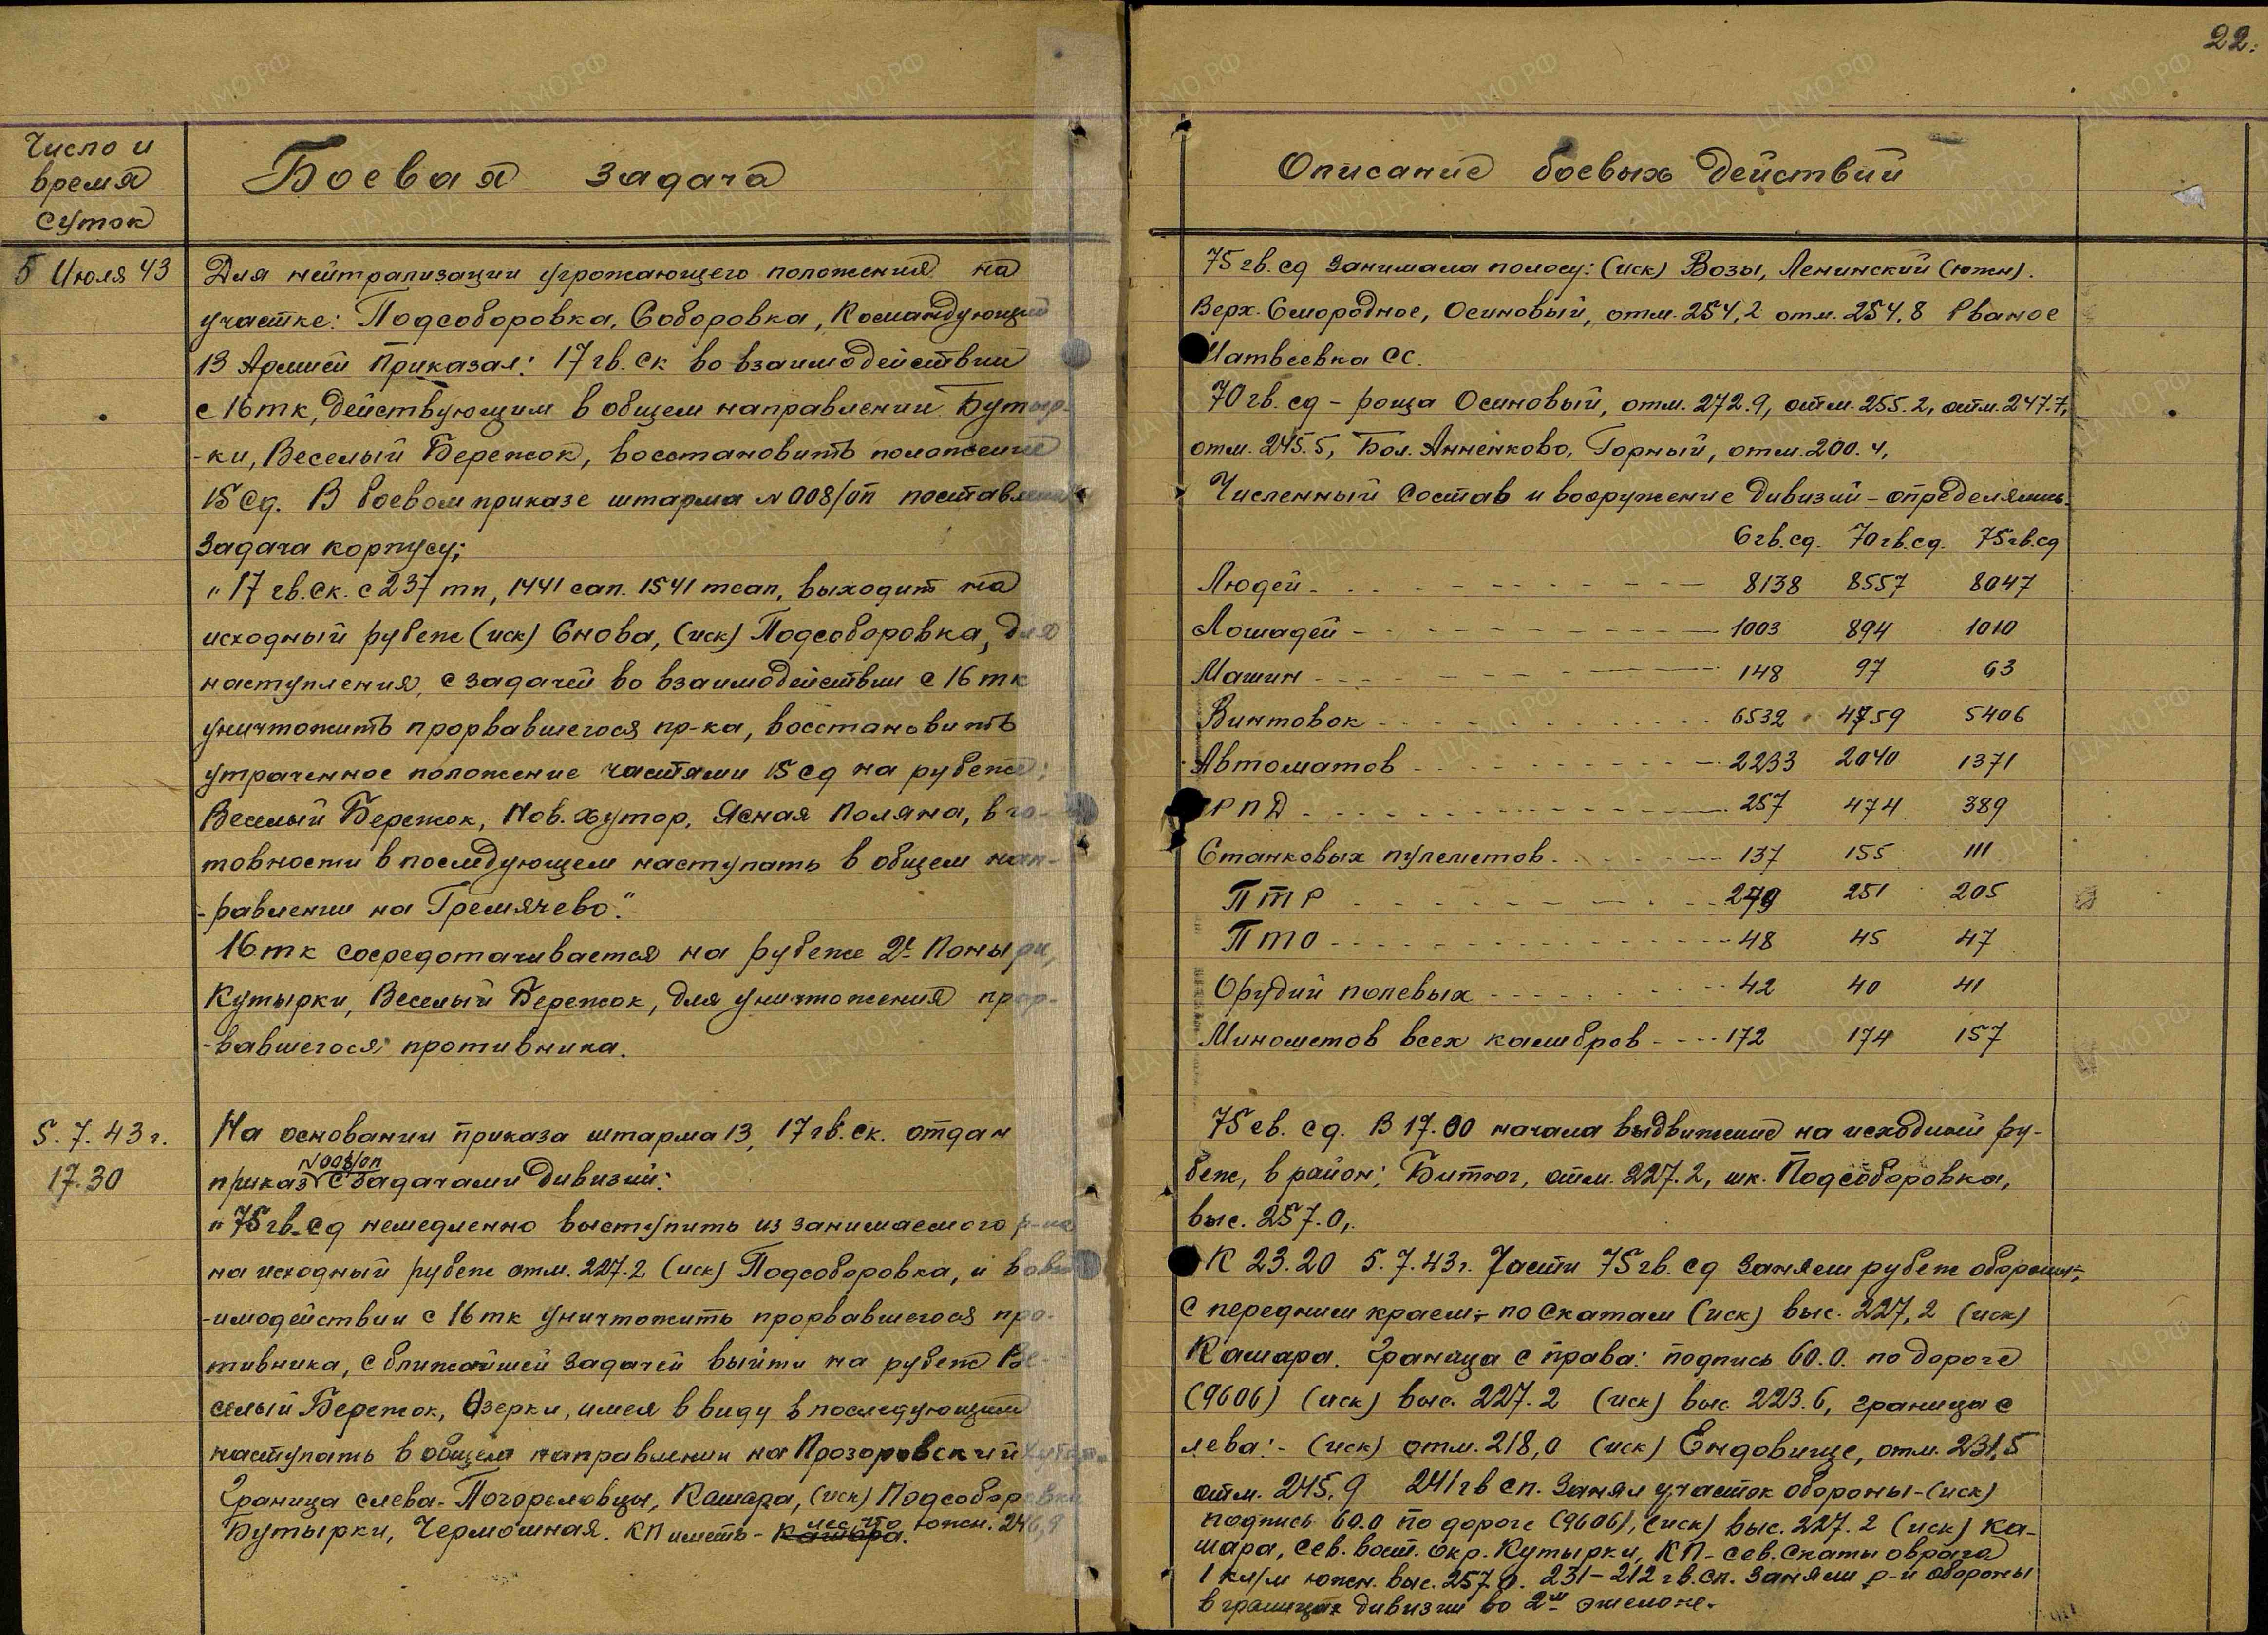 22.
Число и
время
суток
Боевая задача
5 Июля 43
Для нейтрализации угрожающего положения на
участке: Подсоборовка, Соборовка, Командующий
13 Армией приказал: 17 гв. ск во взаимодействии
с 16 тк, действующим в общем направлении Бутыр-
-ки, Веселый Бережок, восстановить положение
15 сд. В боевом приказе штарма N 008/оп поставлена
задача корпусу;
"17 гв. ск. с 237 тп, 1441 сап. 1541 тсап, выходит на
исходный рубеж (иск) Снова, (иск) Подсоборовка, для
наступления, с задачей во взаимодействии с 16 тк
уничтожить прорвавшегося пр-ка, восстановить
утраченное положение частями 15 сд на рубеже:
Веселый Бережок, Нов. хутор, Ясная Поляна, в го-
товности в последующем наступать в общем нап-
-равлении на Гремячево."
16 тк сосредотачивается на рубеже 2е Поныри,
Кутырки, Веселый Бережок, для уничтожения прор-
-вавшегося противника.
5. 7. 43 г.
17.30
На основании приказа штарма 13, 17 гв. ск. отдан
N 008/оп
приказ с задачами дивизий:
"75 гв. сд немедленно выступить из занимаемого р-на
на исходный рубеж отм. 227.2 (иск) Подсоборовка, и во вза
-имодействии с 16 тк уничтожить прорвавшегося про-
тивника, с ближайшей задачей выйти на рубеж Ве-
селый Бережок, Озерки, имея в виду в последующем
наступать в общем направлении на Прозоровский хутор.
Граница слева- Погореловцы, Кашара, (иск) Подсоборовка
Бутырки, Чермошная. КП иметь - Кашара. лес, что южн. 246,9
Описание боевых действий
75 гв. сд занимала полосу: (иск) Возы, Ленинский (южн).
Верх. Смородное, Осиновый, отм. 254,2 отм. 254,8 Рваное
Матвеевка СС.
70 гв. сд - роща Осиновый, отм. 272.9, отм. 255.2, отм. 247.7,
отм. 245.5, Бол. Анненково, Горный, отм. 200.4,
Численный состав и вооружение дивизий - определялись.
6 гв. сд. 70 гв. сд. 75 гв. сд
Людей - 8138 8557 8047
Лошадей - 1003 894 1010
Машин - 148 97 63
Винтовок - 6532 4759 5406
Автоматов - 2233 2040 1371
РПД - 257 474 389
Станковых пулеметов - 137 155 111
ПТР - 279 251 205
ПТО - 48 45 47
Орудий полевых - 42 40 41
Минометов всех калибров - 172 174 157
75 гв. сд. В 17.00 начала выдвижение на исходный ру-
беж, в район: Битюг, отм. 227.2, шк. Подсоборовка,
выс. 257.0,.
К 23.20 5.7.43 г. Части 75 гв. сд заняли рубеж обороны;
с передним краем:- по скатам (иск) выс. 227,2 (иск)
Кашара. Граница с права: подпись 60.0. по дороге
(9606) (иск) выс. 227.2 (иск) выс. 223.6, граница с
лева:- (иск) отм. 218,0 (иск) Ендовище, отм. 231,5
отм. 245,9 241 гв сп. Занял участок обороны - (иск)
подпись 60.0 по дороге (9606), (иск) выс. 227.2 (иск) Ка-
шара, сев. вост. окр. Кутырки, КП - сев. скаты оврага
1 кл/м южн. выс. 257.0. 231 - 212 гв. сп. Заняли р-н обороны
в границах дивизии во 2м эшелоне.